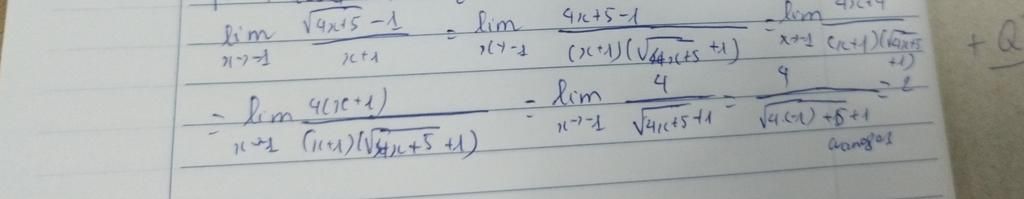 lim x→-1 (√(4x+5) - 1)/(x+1) = lim x→-1 (4x+5-1)/((x+1)(√(4x+5)+1)) = lim x→-1 (4x+4)/((x+1)(√(4x+5)+1)) + Q
= lim x→-1 4(x+1)/((x+1)(√(4x+5)+1)) = lim x→-1 4/(√(4x+5)+1) = 4/(√(4(-1)+5)+1) = 2